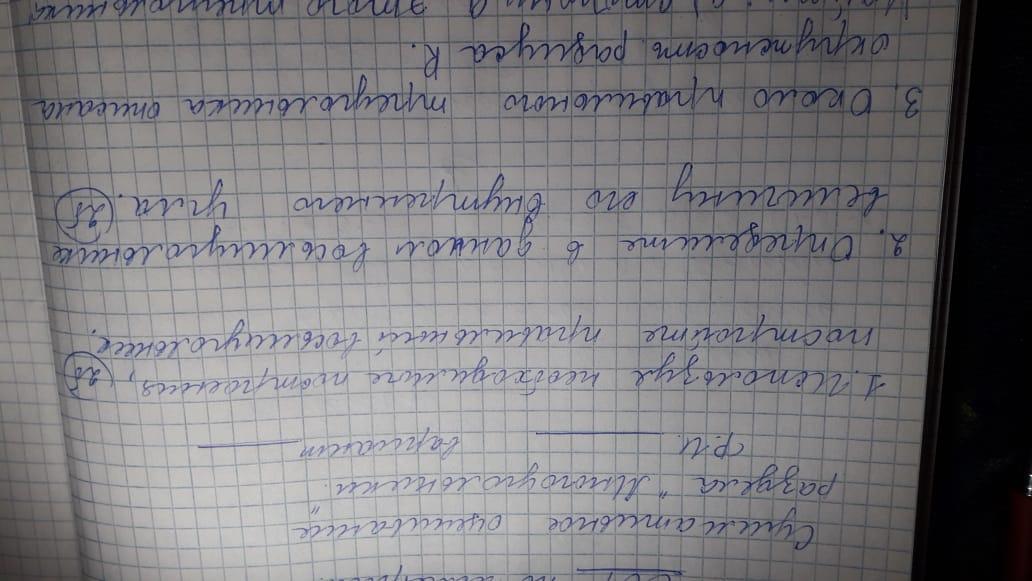 Суммативное оценивание
раздела "Многоугольники".
Ф.И. вариант
1. Используя необходимые построения, (2б)
постройте правильный восьмиугольник.
2. Определите в данном восьмиугольнике
величину его внутреннего угла. (2б)
3. Около правильного треугольника описана
окружность радиуса R.
этого треугольника